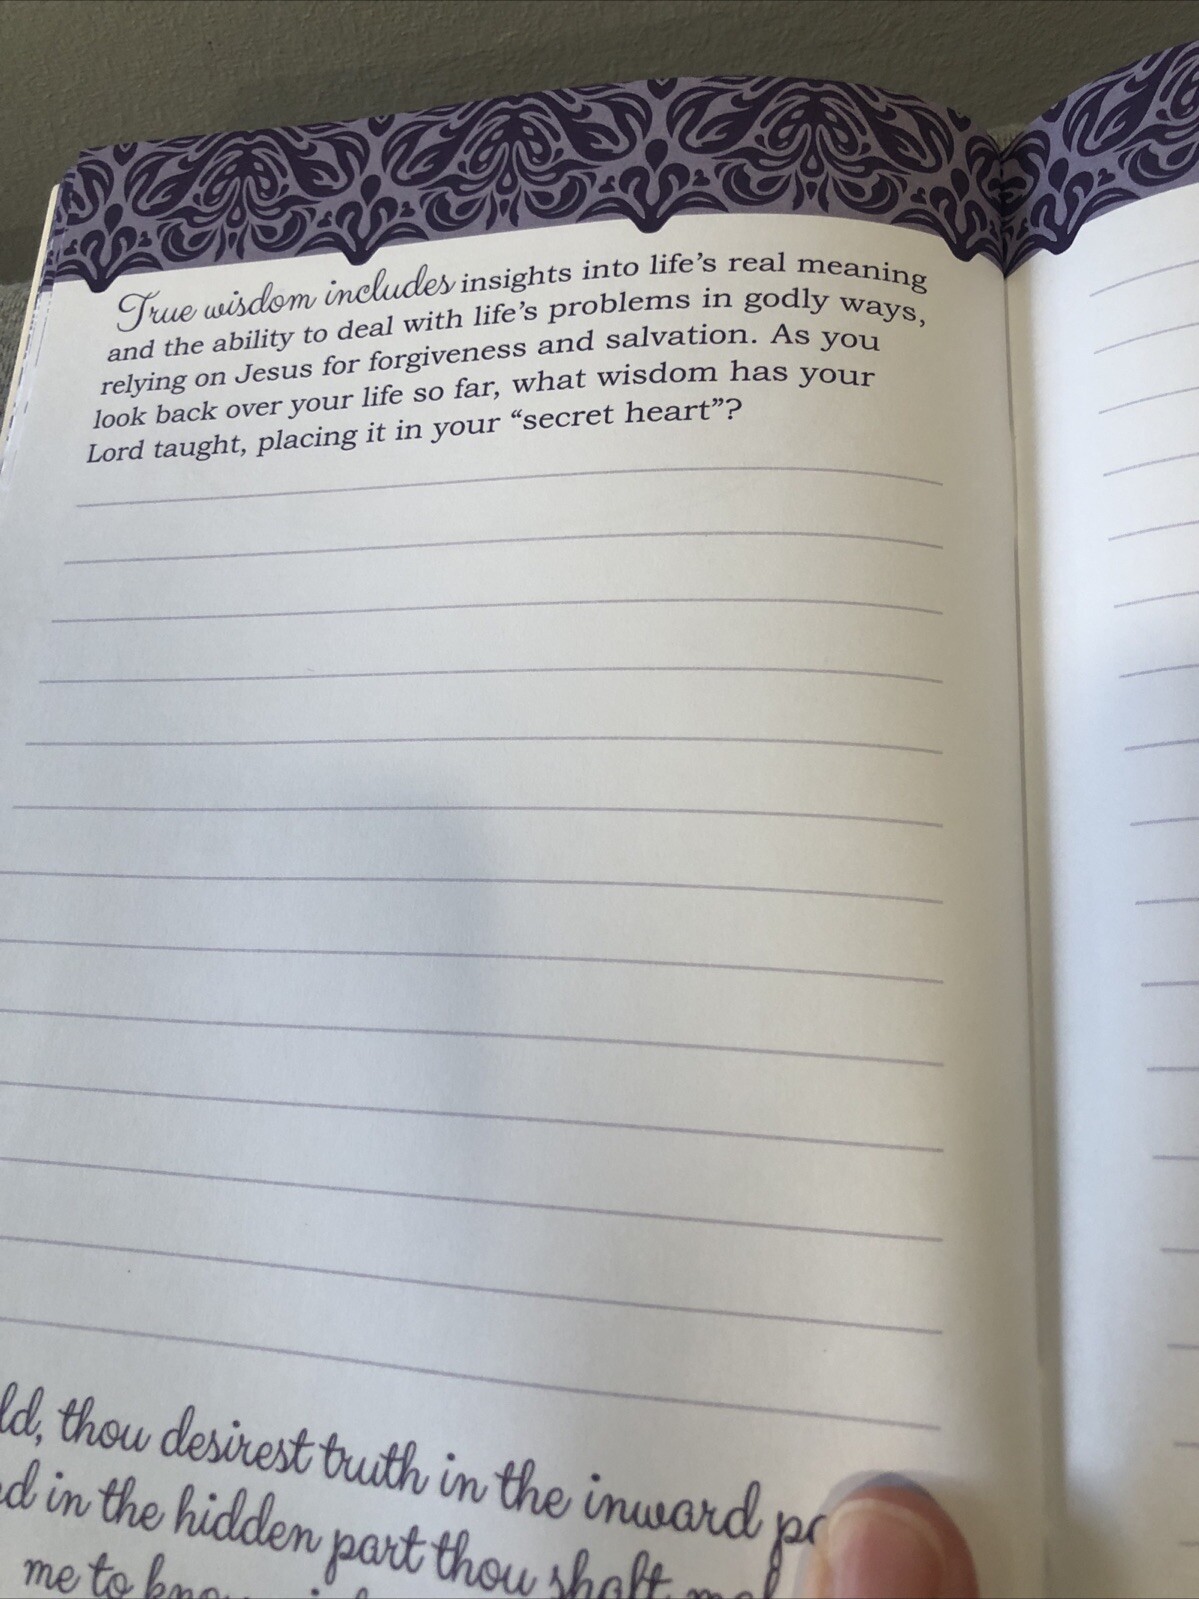 True wisdom includes insights into life's real meaning
and the ability to deal with life's problems in godly ways,
relying on Jesus for forgiveness and salvation. As you
look back over your life so far, what wisdom has your
Lord taught, placing it in your “secret heart”?
thou desirest truth in the inward
in the hidden part thou shalt
me to